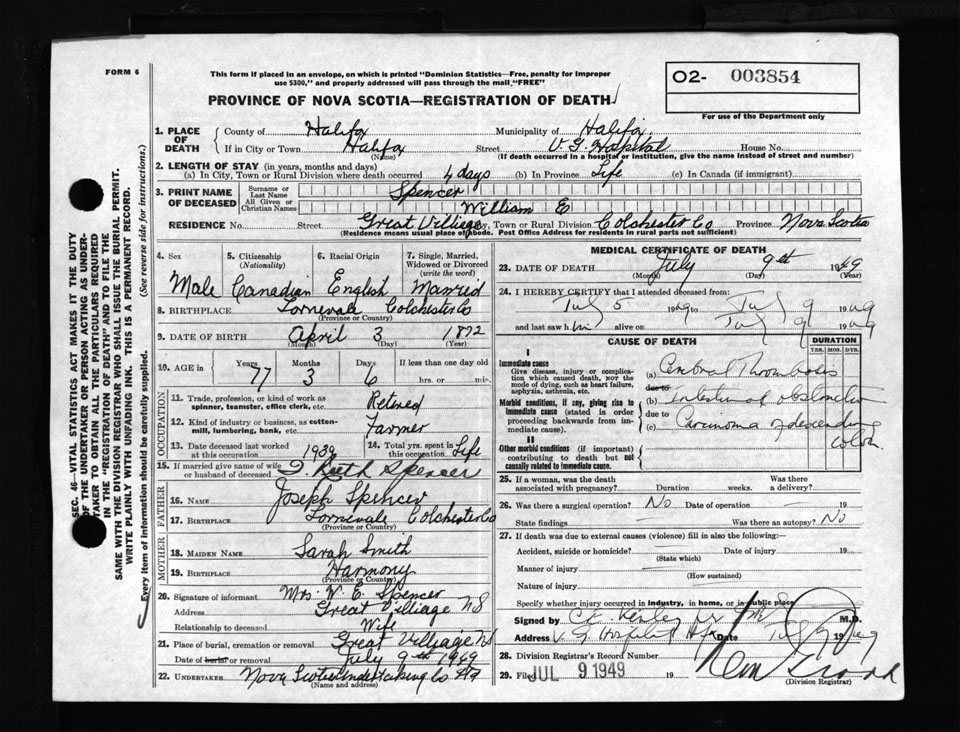 FORM 6
This form if placed in an envelope, on which is printed "Dominion Statistics—Free, penalty for improper
use $300," and properly addressed will pass through the mail "FREE"
O2- 003854
For use of the Department only
PROVINCE OF NOVA SCOTIA—REGISTRATION OF DEATH
1. PLACE OF DEATH
County of Halifax Municipality of Halifax
If in City or Town Halifax Street V. G. Hospital House No.
(Name) (If death occurred in a hospital or institution, give the name instead of street and number)
2. LENGTH OF STAY (in years, months and days)
(a) In City, Town or Rural Division where death occurred 4 days (b) In Province Life (c) In Canada (if immigrant)
3. PRINT NAME OF DECEASED
Surname or Last Name Spencer
All Given or Christian Names William E
RESIDENCE No. Street Great Villiage City, Town or Rural Division Colchester Co Province Nova Scotia
(Residence means usual place of abode. Post Office Address for residents in rural parts not sufficient)
4. Sex 5. Citizenship (Nationality) 6. Racial Origin 7. Single, Married, Widowed or Divorced (write the word)
Male Canadian English Married
8. BIRTHPLACE Lornevale Colchester Co
(Province or Country)
9. DATE OF BIRTH April 3 1872
(Month) (Day) (Year)
10. AGE in Years Months Days If less than one day old
77 3 6 hrs. or min.
OCCUPATION
11. Trade, profession, or kind of work as spinner, teamster, office clerk, etc. Retired
12. Kind of industry or business, as cotton-mill, lumbering, bank, etc. Farmer
13. Date deceased last worked at this occupation 1939 14. Total yrs. spent in this occupation Life
15. If married give name of wife or husband of deceased Ruth Spencer
FATHER
16. NAME Joseph Spencer
17. BIRTHPLACE Lornevale Colchester Co
(Province or Country)
MOTHER
18. MAIDEN NAME Sarah Smith
19. BIRTHPLACE Harmony
(Province or Country)
20. Signature of informant Mrs. W. E. Spencer
Address Great Villiage NS
Relationship to deceased Wife
21. Place of burial, cremation or removal Great Villyage NS
Date of burial or removal July 9th 1949
22. UNDERTAKER Nova Scotia Undertaking Co
(Name and address)
MEDICAL CERTIFICATE OF DEATH
23. DATE OF DEATH July 9th 1949
(Month) (Day) (Year)
24. I HEREBY CERTIFY that I attended deceased from:
July 5 1949 July 9 1949
and last saw him alive on July 9 1949
CAUSE OF DEATH DURATION
YRS. MOS. DYS.
I
Immediate cause
Give disease, injury or complication which caused death, NOT the mode of dying, such as heart failure, asphyxia, asthenia, etc.
(a) Cerebral Thrombosis
due to
Morbid conditions, if any, giving rise to immediate cause (stated in order proceeding backwards from immediate cause).
(b) Intestinal obstruction
due to
(c) Carcinoma of descending colon
II
Other morbid conditions (if important) contributing to death but not causally related to immediate cause.
25. If a woman, was the death associated with pregnancy? Duration weeks. Was there a delivery?
26. Was there a surgical operation? No Date of operation 19
State findings Was there an autopsy? No
27. If death was due to external causes (violence) fill in also the following:—
Accident, suicide or homicide? Date of injury 19
(State which)
Manner of injury
(How sustained)
Nature of injury
Specify whether injury occurred in industry, in home, or in public place
Signed by M.D.
Address V. G. Hospital Hfx Date July 9 1949
28. Division Registrar's Record Number
29. Filed JUL 9 1949 19
(Division Registrar)
SEC. 46—VITAL STATISTICS ACT MAKES IT THE DUTY
OF THE UNDERTAKER OR PERSON ACTING AS UNDER-
TAKER TO OBTAIN ALL THE PARTICULARS REQUIRED
IN THE "REGISTRATION OF DEATH" AND TO FILE THE
SAME WITH THE DIVISION REGISTRAR WHO SHALL ISSUE THE BURIAL PERMIT.
WRITE PLAINLY WITH UNFADING INK. THIS IS A PERMANENT RECORD.
Every item of information should be carefully supplied. (See reverse side for instructions.)